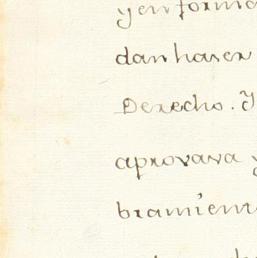 y en forma
dan haser
Derecho. Y
aprovava y
bramient